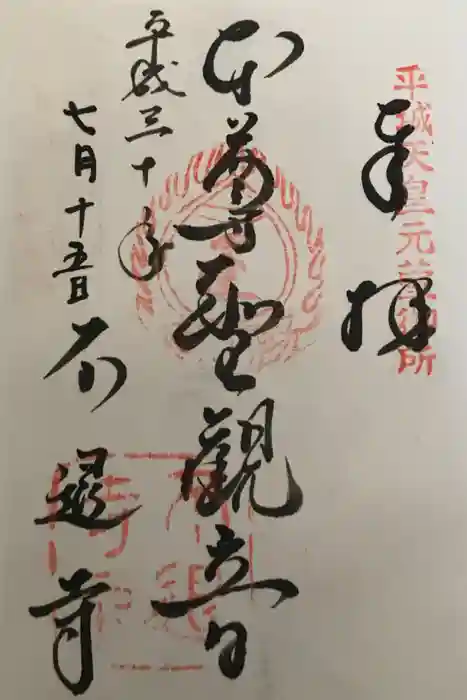 奉拝
平城天皇元萱御所
本尊聖観音
平成三十年
七月十五日
不退寺